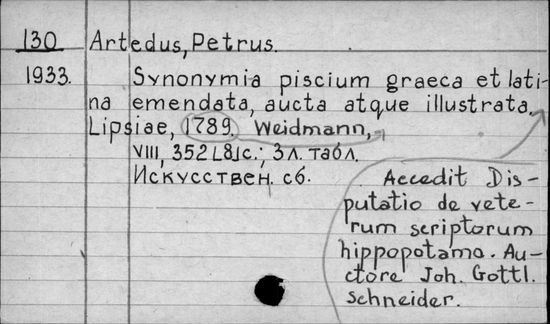 130 Artedus, Petrus.
1933. Synonymia piscium graeca et lati-
na emendata, aucta atque illustrata.
Lipsiae, 1789. Weidmann,
VIII, 352[8]c.; 3 л. табл.
Искусствен. сб.
Accedit Dis-
putatio de vete-
rum scriptorum
hippopotamo. Au-
ctore Joh. Gottl.
Schneider.